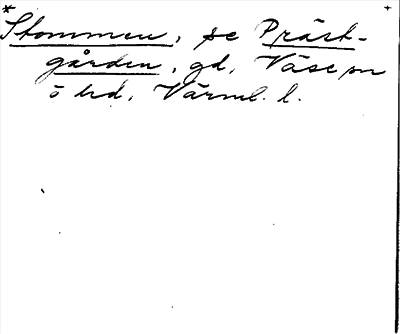 *Stommen, se Präst-
gården, gd, Väse sn
ö hd, Värml. l.